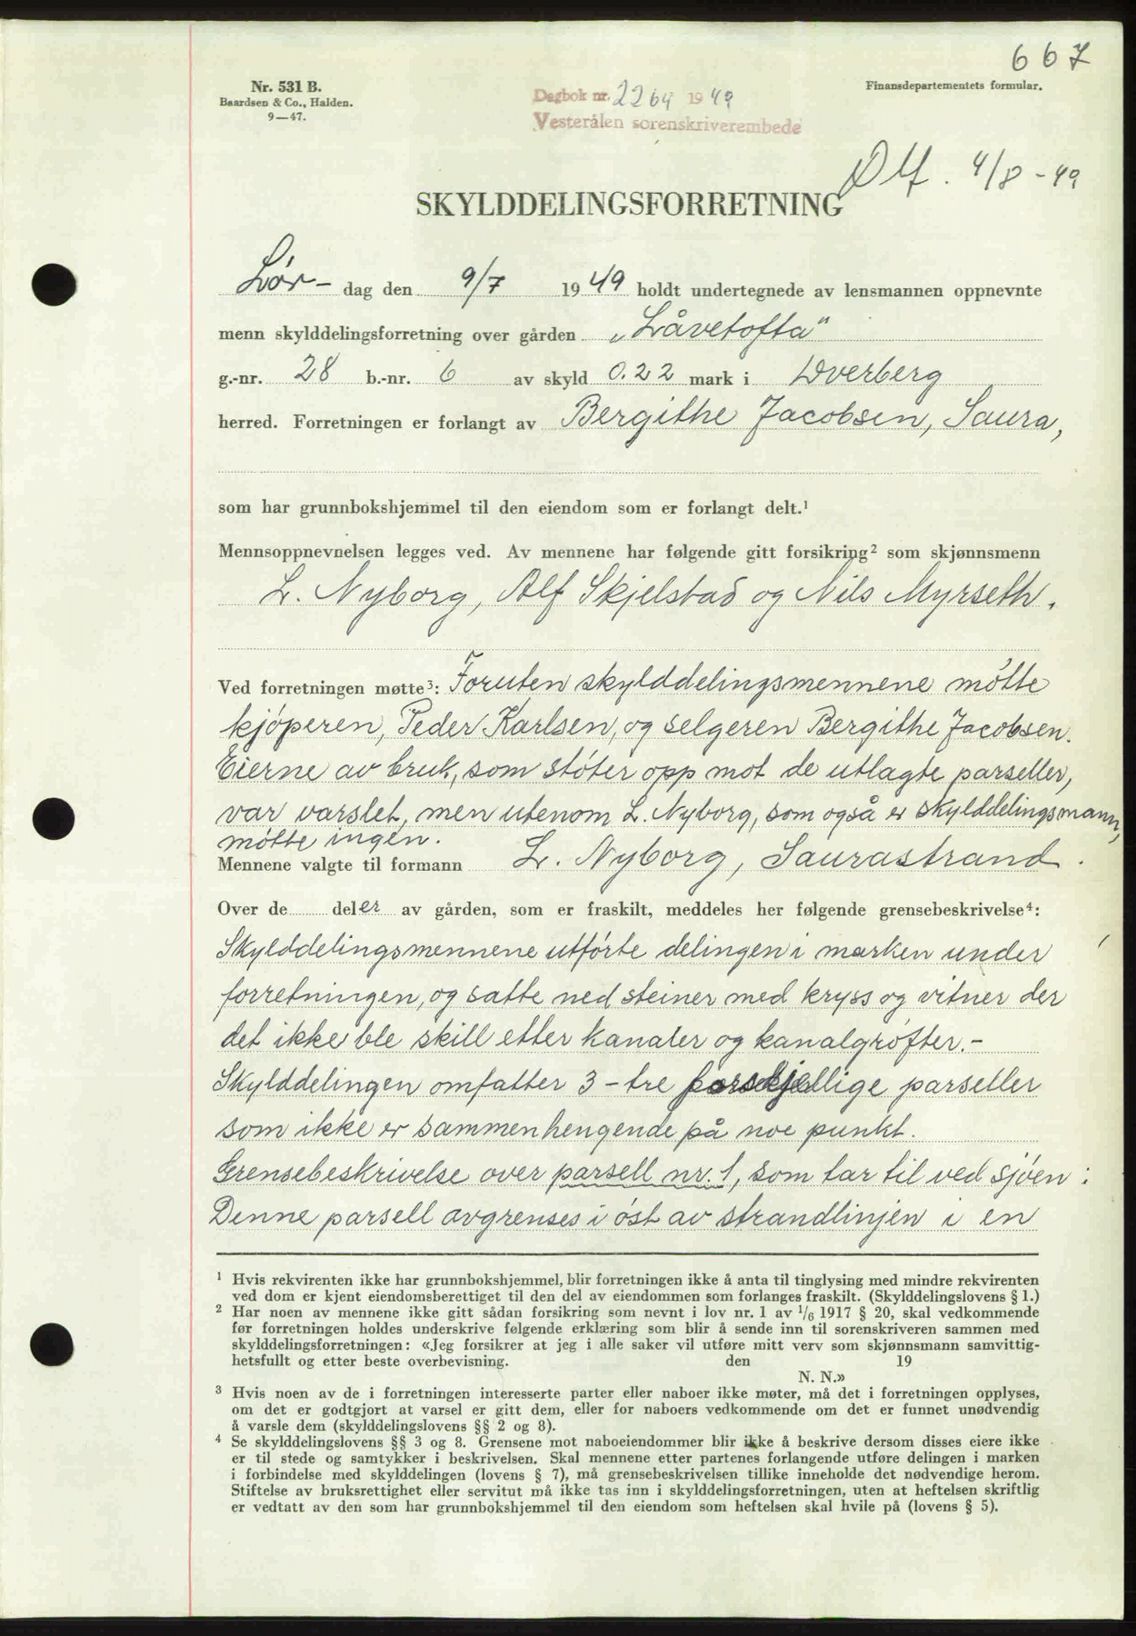 667
Nr. 531 B.
Baardsen & Co., Halden.
9—47.
Dagbok nr. 2264 1949
Vesterålen sorenskriverembede
Finansdepartementets formular.
4/8-49
SKYLDDELINGSFORRETNING
Lør- dag den 9/7 1949 holdt undertegnede av lensmannen oppnevnte
menn skylddelingsforretning over gården „Låvetofta"
g.-nr. 28 b.-nr. 6 av skyld 0.22 mark i Dverberg
herred. Forretningen er forlangt av Bergithe Jacobsen, Saura,
som har grunnbokshjemmel til den eiendom som er forlangt delt.¹
Mennsoppnevnelsen legges ved. Av mennene har følgende gitt forsikring² som skjønnsmenn
L. Nyborg, Alf Skjelstad og Nils Myrseth.
Ved forretningen møtte³: Foruten skylddelingsmennene møtte
kjøperen, Peder Karlsen, og selgeren Bergithe Jacobsen.
Eierne av bruk, som støter opp mot de utlagte parseller,
var varslet, men utenom L. Nyborg, som også er skylddelingsmann,
møtte ingen.
Mennene valgte til formann L. Nyborg, Saurastrand.
Over de deler av gården, som er fraskilt, meddeles her følgende grensebeskrivelse⁴:
Skylddelingsmennene utførte delingen i marken under
forretningen, og satte ned steiner med kryss og vitner der
det ikke ble skill etter kanaler og kanalgrøfter.-
Skylddelingen omfatter 3-tre forskjellige parseller
som ikke er sammenhengende på noe punkt.
Grensebeskrivelse over parsell nr. 1, som tar til ved sjøen:
Denne parsell avgrenses i øst av strandlinjen i en
¹ Hvis rekvirenten ikke har grunnbokshjemmel, blir forretningen ikke å anta til tinglysing med mindre rekvirenten
ved dom er kjent eiendomsberettiget til den del av eiendommen som forlanges fraskilt. (Skylddelingslovens § 1.)
² Har noen av mennene ikke gitt sådan forsikring som nevnt i lov nr. 1 av 1/6 1917 § 20, skal vedkommende
før forretningen holdes underskrive følgende erklæring som blir å sende inn til sorenskriveren sammen med
skylddelingsforretningen: «Jeg forsikrer at jeg i alle saker vil utføre mitt verv som skjønnsmann samvittig-
hetsfullt og etter beste overbevisning. den 19
N. N.»
³ Hvis noen av de i forretningen interesserte parter eller naboer ikke møter, må det i forretningen opplyses,
om det er godtgjort at varsel er gitt dem, eller for naboers vedkommende om det er funnet unødvendig
å varsle dem (skylddelingslovens §§ 2 og 8).
⁴ Se skylddelingslovens §§ 3 og 8. Grensene mot naboeiendommer blir ikke å beskrive dersom disses eiere ikke
er til stede og samtykker i beskrivelsen. Skal mennene etter partenes forlangende utføre delingen i marken
i forbindelse med skylddelingen (lovens § 7), må grensebeskrivelsen tillike inneholde det nødvendige herom.
Stiftelse av bruksrettighet eller servitut må ikke tas inn i skylddelingsforretningen, uten at heftelsen skriftlig
er vedtatt av den som har grunnbokshjemmel til den eiendom som heftelsen skal hvile på (lovens § 5).